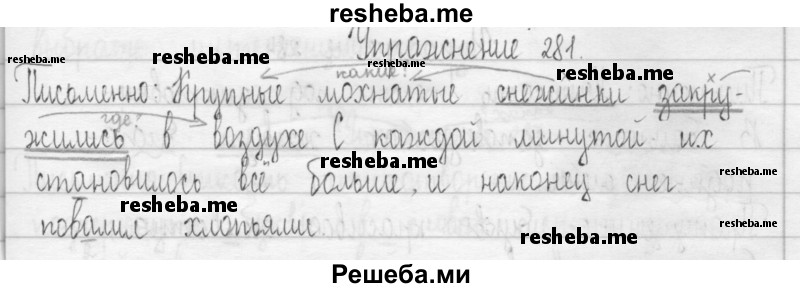 resheba.me
Упражнение 281.
resheba.me resheba.me resheba.me
какие?
Письменно: Крупные мохнатые снежинки закру-
где?
жились в воздухе С каждой минутой их
resheba.me
становилось всё больше, и наконец снег
resheba.me
повалил хлопьями.
resheba.me
Решеба.ми